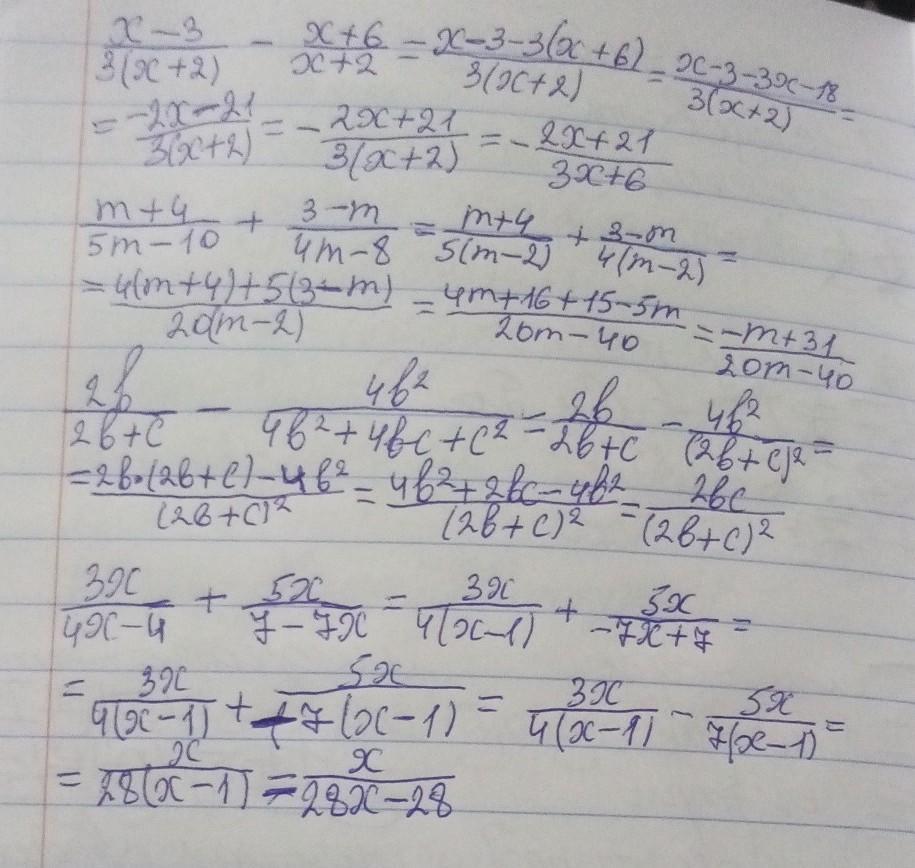 (x-3)/(3(x+2)) - (x+6)/(x+2) = (x-3-3(x+6))/(3(x+2)) = (x-3-3x-18)/(3(x+2)) =
= (-2x-21)/(3(x+2)) = - (2x+21)/(3(x+2)) = - (2x+21)/(3x+6)
(m+4)/(5m-10) + (3-m)/(4m-8) = (m+4)/(5(m-2)) + (3-m)/(4(m-2)) =
= (4(m+4)+5(3-m))/(20(m-2)) = (4m+16+15-5m)/(20m-40) = (-m+31)/(20m-40)
2b/(2b+c) - 4b²/(4b²+4bc+c²) = 2b/(2b+c) - 4b²/(2b+c)² =
= (2b·(2b+c)-4b²)/(2b+c)² = (4b²+2bc-4b²)/(2b+c)² = 2bc/(2b+c)²
3x/(4x-4) + 5x/(7-7x) = 3x/(4(x-1)) + 5x/(-7x+7) =
= 3x/(4(x-1)) + 5x/(-7(x-1)) = 3x/(4(x-1)) - 5x/(7(x-1)) =
= x/(28(x-1)) = x/(28x-28)